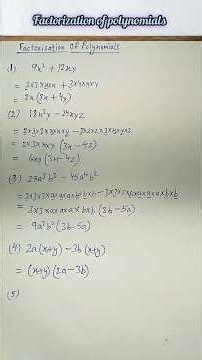 Factorization of polynomials
Factorisation Of Polynomials
(1) 9x² + 12xy
= 3×3×x×x + 3×4×x×y
= 3x (3x + 4y)
(2) 18x²y - 24xyz
= 2×3×3×x×x×y - 2×2×2×3×x×y×z
= 2×3×x×y (3x - 4z)
= 6xy (3x - 4z)
(3) 27a³b³ - 45a⁴b²
= 3×3×3×a×a×a×b×b×b - 3×3×5×a×a×a×a×b×b
= 3×3×a×a×a×b×b (3b - 5a)
= 9a³b² (3b - 5a)
(4) 2a(x+y) - 3b(x+y)
= (x+y) (2a - 3b)
(5)